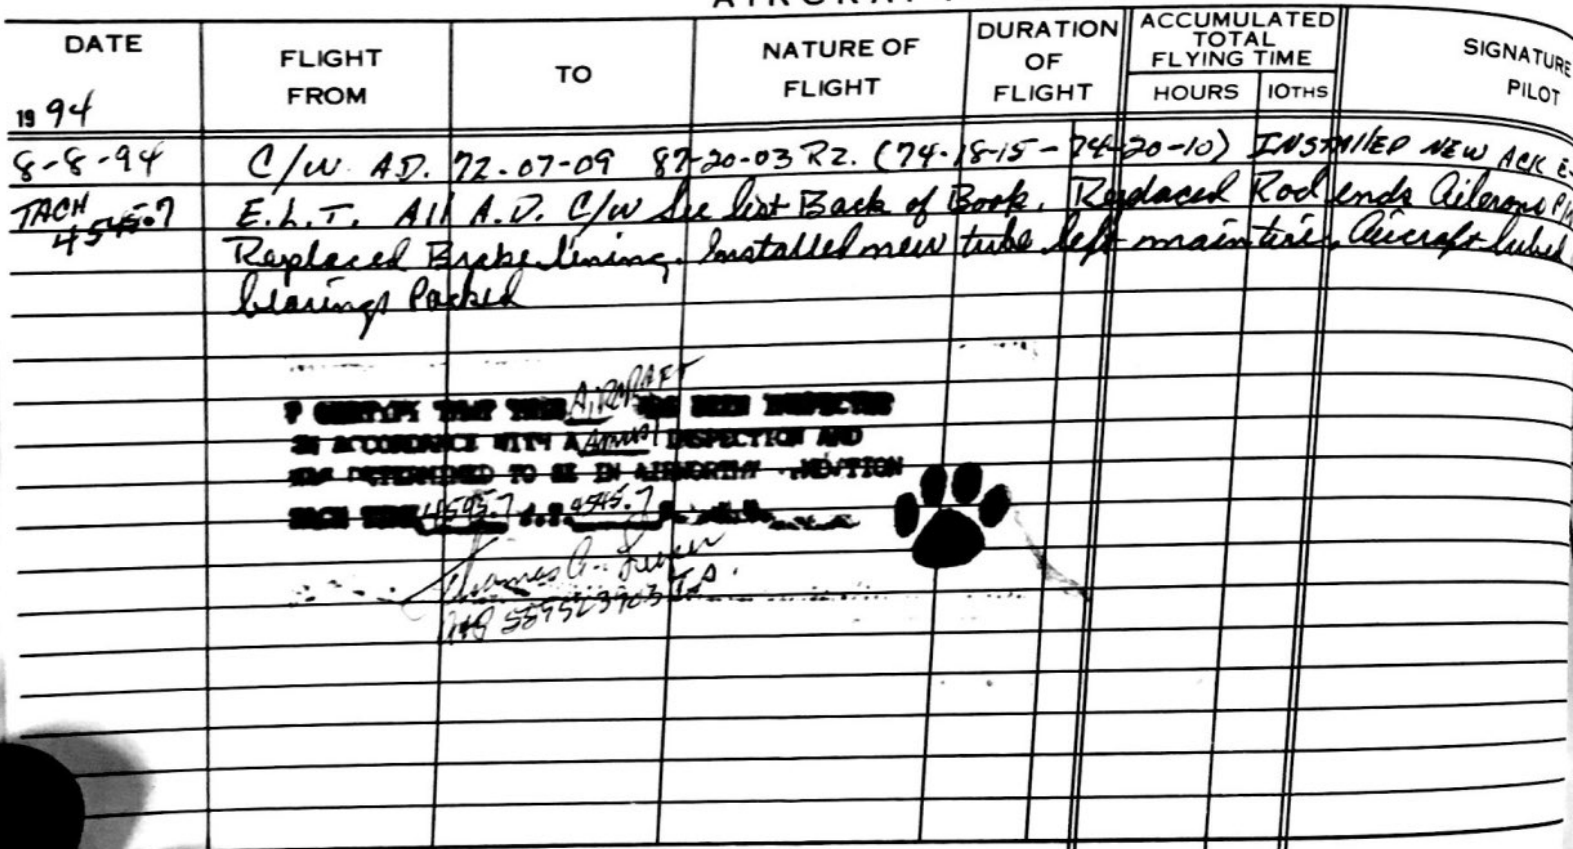 DATE
FLIGHT
FROM
TO
NATURE OF
FLIGHT
DURATION
OF
FLIGHT
ACCUMULATED
TOTAL
FLYING TIME
HOURS
10THS
SIGNATURE
PILOT
19 94
8-8-94 C/W. AD. 72-07-09 87-20-03 R2. (74-18-15 - 74-20-10) INSTALLED NEW ACK E-
TACH E.L.T. All A.D. C/W See list Back of Book. Replaced Rod ends Ailerons
4545.7 Replaced Brake lining. Installed new tube left main tire, Aircraft lubed
bearings Packed
I CERTIFY THAT THIS AIRCRAFT HAS BEEN INSPECTED
IN ACCORDANCE WITH A Annual INSPECTION AND
WAS DETERMINED TO BE IN AIRWORTHY CONDITION
TACH TIME 4545.7 T.T. 4545.7
Thomas